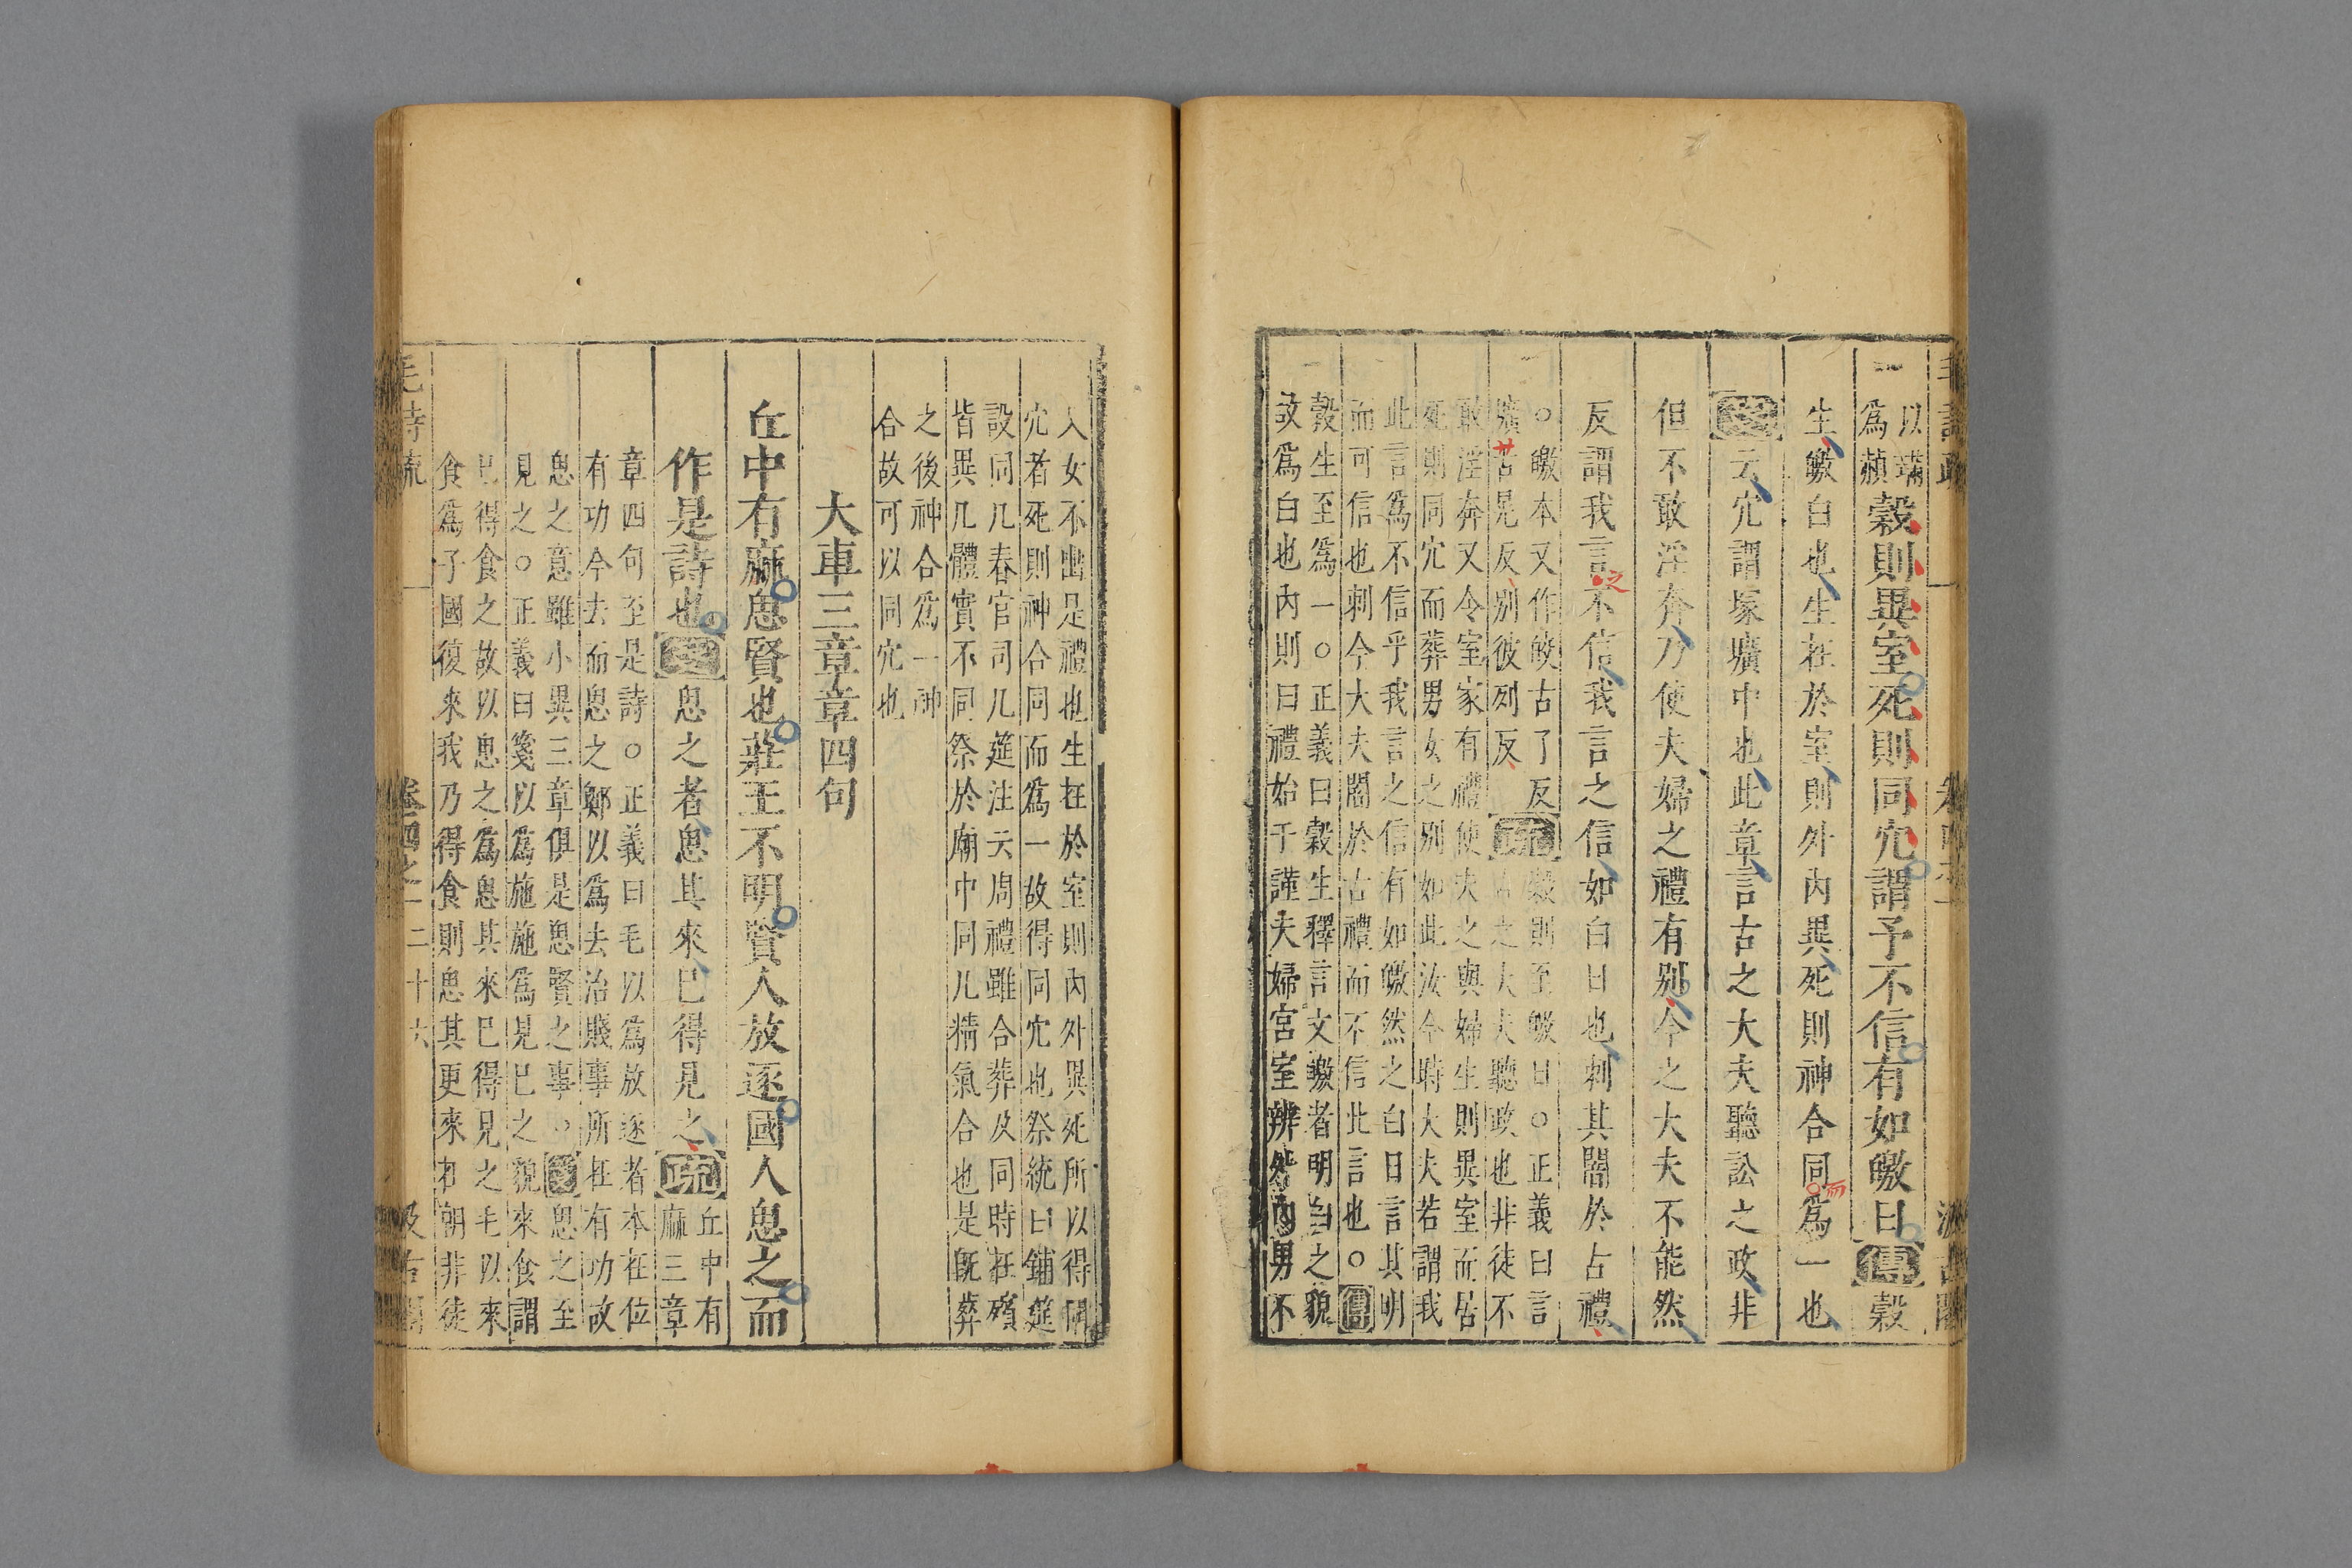 以璊
爲赬
穀則異室死則同穴謂予不信有如皦日傳穀
生皦白也生在於室則外內異死則神合同爲一也
而
箋云穴謂塚壙中也此章言古之大夫聽訟之政非
但不敢淫奔乃使夫婦之禮有別今之大夫不能然
反謂我言不信我言之信如白日也刺其闇於古禮
之
○皦本又作皎古了反
壙苦晃反別彼列反
疏
穀則至皦日○正義曰言
古之大夫聽政也非徒不
敢淫奔又令室家有禮使夫之與婦生則異室而居
死則同穴而葬男女之別如此汝今時大夫若謂我
此言爲不信乎我言之信有如皦然之白日言其明
而可信也刺今大夫闇於古禮而不信此言也○傳
穀生至爲一○正義曰穀生釋言文皦者明白之貌
故爲白也內則曰禮始于謹夫婦宮室辨外內男不
入女不出是禮也生在於室則內外異死所以得同
穴者死則神合同而爲一故得同穴也祭統曰鋪筵
設同几春官司几筵注云周禮雖合葬及同時在殯
皆異几體實不同祭於廟中同几精氣合也是既葬
之後神合爲一神
合故可以同穴也
大車三章章四句
丘中有麻思賢也莊王不明賢人放逐國人思之而
作是詩也箋思之者思其來已得見之疏
丘中有
麻三章
章四句至是詩○正義曰毛以爲放逐者本在位
有功今去而思之鄭以爲去治賤事所在有功故
思之意雖小異三章俱是思賢之事○箋思之至
見之○正義曰箋以爲施施爲見已之貌來食謂
已得食之故以思之爲思其來已得見之毛以來
食爲子國復來我乃得食則思其更來在朝非徒
毛詩疏
卷四之一
二十六
汲古閣